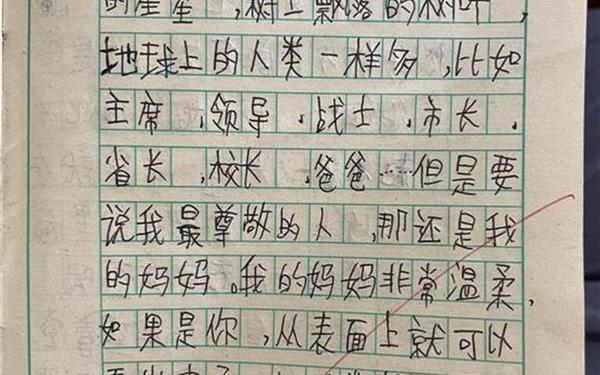 的星星，树上飘落的树叶，
地球上的人类一样多，比如
主席，领导，战士，市长，
省长，校长，爸爸……但是要
说我最尊敬的人，那还是我
的妈妈。我的妈妈非常温柔，
如果是你，从表面上就可以